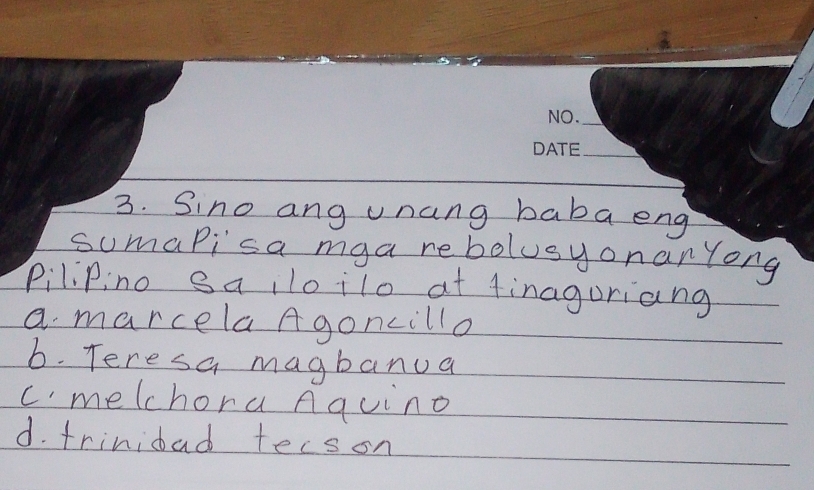 NO.
DATE
3. Sino ang unang baba eng
sumapi sa mga rebolusyonaryong
Pilipino sa iloilo at tinaguriang
a. marcela Agoncillo
b. Teresa magbanua
c. melchora Aquino
d. trinidad tecson